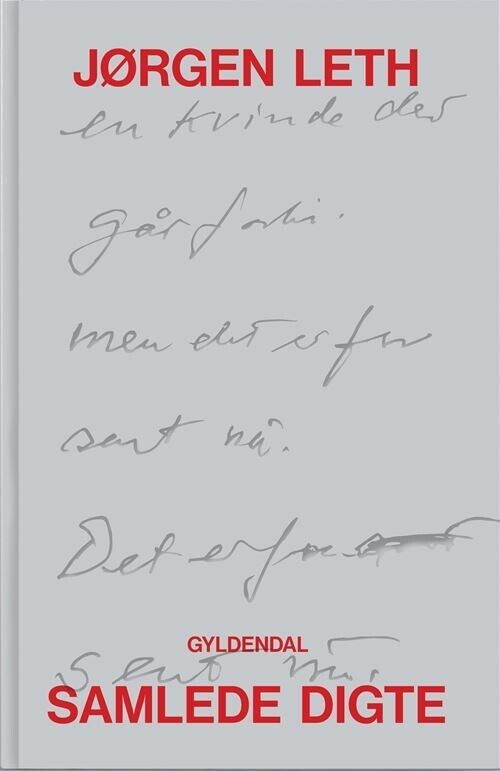 JØRGEN LETH
en kvinde der
går forbi.
men det er for
sent nu.
Det er for
GYLDENDAL
sent nu.
SAMLEDE DIGTE